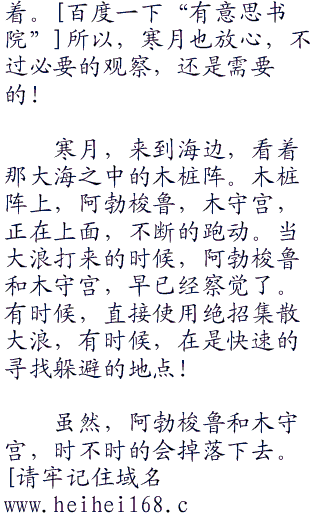 着。[百度一下“有意思书
院”]所以，寒月也放心，不
过必要的观察，还是需要
的！
寒月，来到海边，看着
那大海之中的木桩阵。木桩
阵上，阿勃梭鲁，木守宫，
正在上面，不断的跑动。当
大浪打来的时候，阿勃梭鲁
和木守宫，早已经察觉了。
有时候，直接使用绝招集散
大浪，有时候，在是快速的
寻找躲避的地点！
虽然，阿勃梭鲁和木守
宫，时不时的会掉落下去。
[请牢记住域名
www.heihei168.c